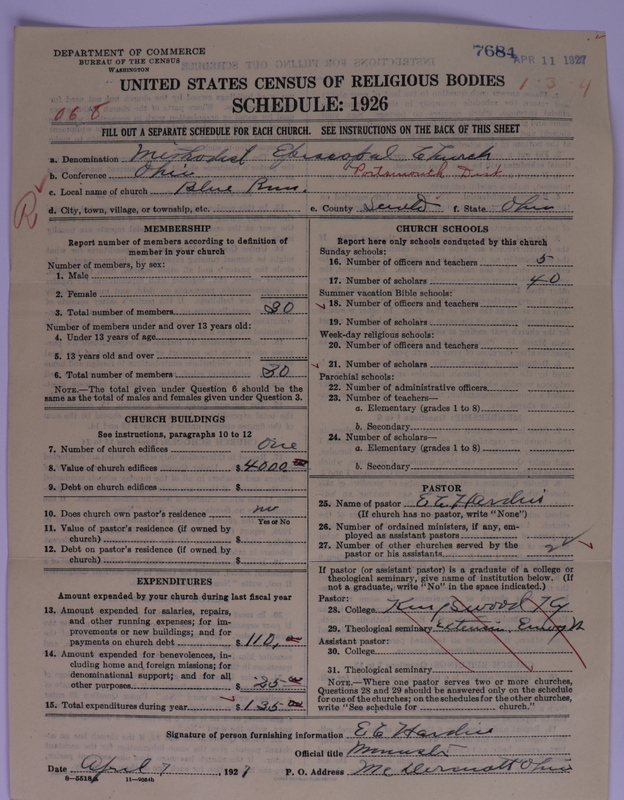 DEPARTMENT OF COMMERCE
BUREAU OF THE CENSUS
WASHINGTON
7684 APR 11 1927
UNITED STATES CENSUS OF RELIGIOUS BODIES
1 - 3 - 4
SCHEDULE: 1926
068
FILL OUT A SEPARATE SCHEDULE FOR EACH CHURCH. SEE INSTRUCTIONS ON THE BACK OF THIS SHEET
a. Denomination Methodist Episcopal Church
b. Conference Ohio Portsmouth Dist
c. Local name of church Blue Run.
d. City, town, village, or township, etc.
e. County Scioto f. State Ohio
R
MEMBERSHIP
Report number of members according to definition of
member in your church
Number of members, by sex:
1. Male
2. Female
3. Total number of members 30
Number of members under and over 13 years old:
4. Under 13 years of age
5. 13 years old and over
6. Total number of members 30
NOTE.—The total given under Question 6 should be the
same as the total of males and females given under Question 3.
CHURCH BUILDINGS
See instructions, paragraphs 10 to 12
7. Number of church edifices One
8. Value of church edifices $4000
9. Debt on church edifices $
10. Does church own pastor's residence no
Yes or No
11. Value of pastor's residence (if owned by
church) $
12. Debt on pastor's residence (if owned by
church) $
EXPENDITURES
Amount expended by your church during last fiscal year
13. Amount expended for salaries, repairs,
and other running expenses; for im-
provements or new buildings; and for
payments on church debt $ 110,
14. Amount expended for benevolences, in-
cluding home and foreign missions; for
denominational support; and for all
other purposes $ 25
15. Total expenditures during year $ 135
CHURCH SCHOOLS
Report here only schools conducted by this church
Sunday schools:
16. Number of officers and teachers 5
17. Number of scholars 40
Summer vacation Bible schools:
18. Number of officers and teachers
19. Number of scholars
Week-day religious schools:
20. Number of officers and teachers
21. Number of scholars
Parochial schools:
22. Number of administrative officers
23. Number of teachers—
a. Elementary (grades 1 to 8)
b. Secondary
24. Number of scholars—
a. Elementary (grades 1 to 8)
b. Secondary
PASTOR
25. Name of pastor E E Hardin
(If church has no pastor, write "None")
26. Number of ordained ministers, if any, em-
ployed as assistant pastors
27. Number of other churches served by the
pastor or his assistants
If pastor (or assistant pastor) is a graduate of a college or
theological seminary, give name of institution below. (If
not a graduate, write "No" in the space indicated.)
Pastor:
28. College Kingswood Ky
29. Theological seminary
Assistant pastor:
30. College
31. Theological seminary
NOTE.—Where one pastor serves two or more churches,
Questions 28 and 29 should be answered only on the schedule
for one of the churches; on the schedules for the other churches,
write "See schedule for church."
Signature of person furnishing information E E Hardin
Official title Minister
Date April 7, 1927 P. O. Address McDermott Ohio
8—5518a 11—9264b